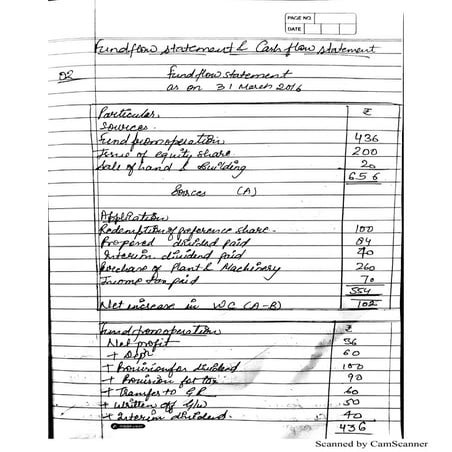 PAGE NO
DATE
Fundflow statement & Cash flow statement
Q2 Fundflow statement
as on 31 March 2016
Particular ₹
Sources
Fund from operation 436
Issue of equity share 200
Sale of land & building 20
656
Sources (A)
Application
Redemption of preference share 100
Proposed dividend paid 84
Interim dividend paid 40
Purchase of Plant & Machinery 260
Income tax paid 70
554
Net increase in WC (A-B) 102
Fund from operation ₹
Net profit 36
+ Dep^r 60
+ Provision for dividend 100
+ Provision for tax 90
+ Transfer to GR 60
+ Written off G/w 50
+ Interim dividend 40
436
Scanned by CamScanner